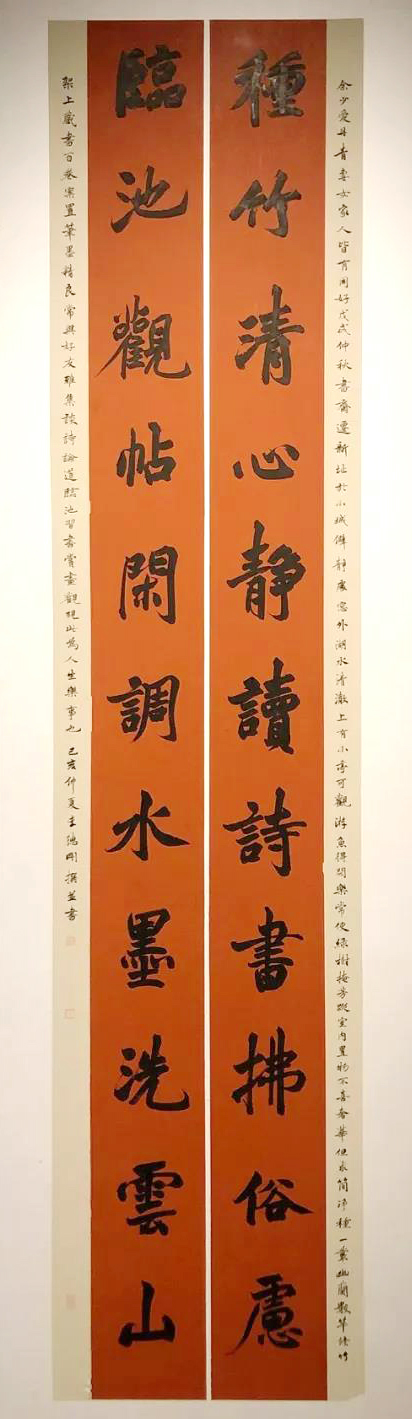 余少愛丹青妻女家人皆有同好戊戌仲秋書齋遷新址於小城僻靜處窓外湖水清澈上有小亭可觀游魚得閒樂常使緑樹掩芳蹤室内置物不喜奢華但求簡淨種一叢幽蘭數竿修竹
種竹清心靜讀詩書拂俗慮
臨池觀帖閑調水墨洗雲山
架上藏書百卷案置筆墨精良常與好友雅集談詩論道臨池習書賞畫觀硯此為人生樂事也 己亥仲夏王剛撰並書